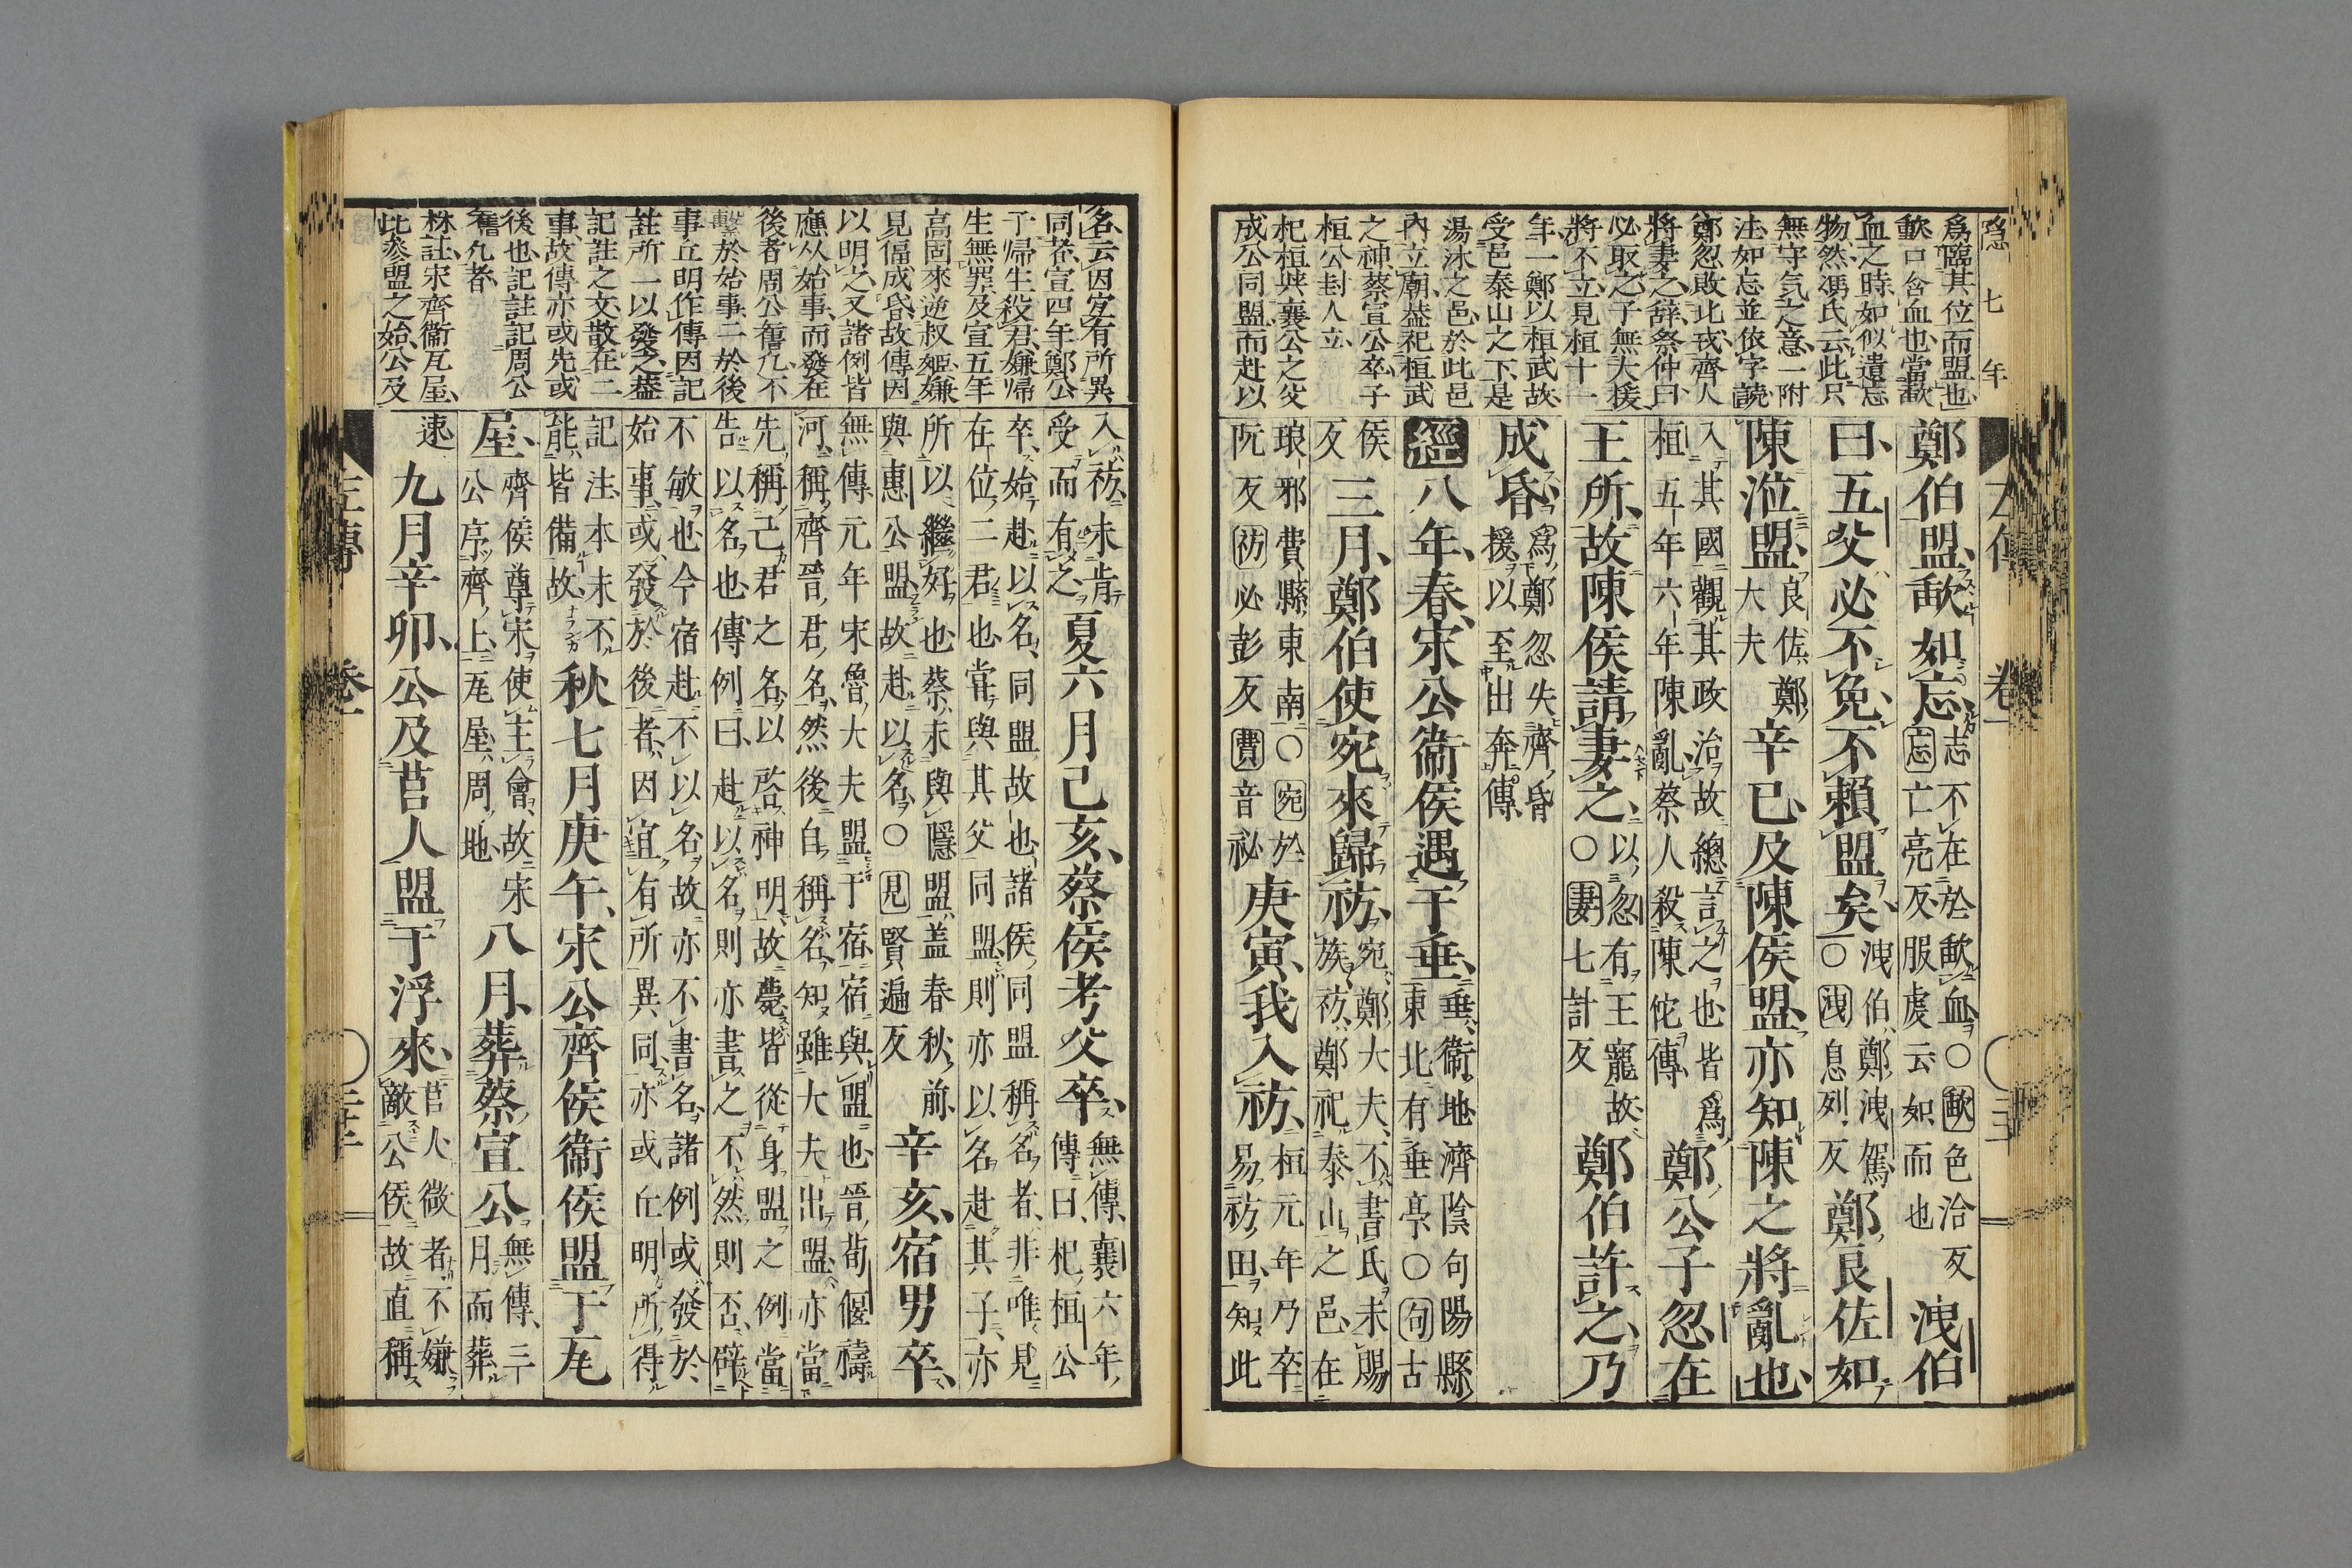 隱七年
爲臨其位而盟也
歃口含血也當歃
血之時如似遺忘
物然馮氏云此只
無守气之意一附
注如忘並依字讀
鄭忽敗北戎齊人
將妻之辭祭仲曰
必取之子無大援
將不立見桓十一
年一鄭以桓武故
受邑泰山之下是
湯沐之邑於此邑
內立廟葢祀桓武
之神蔡宣公卒子
桓公封人立
杞桓與襄公之父
成公同盟而赴以
左傳 卷一
鄭伯盟歃如忘志不在於歃血○歃色洽反忘亡亮反服虔云如而也洩伯
曰五父必不免不賴盟矣洩伯鄭洩駕○洩息列反鄭良佐如
陳涖盟良佐鄭大夫辛巳及陳侯盟亦知陳之將亂也
入其國觀其政治故總言之也皆爲桓五年六年陳亂蔡人殺陳佗傳鄭公子忽在
王所故陳侯請妻之以忽有王寵故○妻七計反鄭伯許之乃
成昏爲鄭忽失齊昏援以至出奔傳
經八年春宋公衞侯遇于垂垂衞地濟陰句陽縣東北有垂亭○句古
侯反三月鄭伯使宛來歸祊宛鄭大夫不書氏未賜族祊鄭祀泰山之邑在
琅邪費縣東南○宛於阮反祊必彭反費音祕庚寅我入祊桓元年乃卒易祊田知此
名云因宜有所異
同者宣四年鄭公
子歸生殺君嫌歸
生無罪及宣五年
高固來逆叔姬嫌
見偪成昏故傳因
以明之又諸例皆
應从始事而發在
後者周公舊凡不
繫於始事二於後
事丘明作傳因記
註所一以發之葢
記註之文散在二
事故傳亦或先或
後也記註記周公
舊凡者
林註宋齊衞瓦屋
此參盟之始公及
入祊未肯受而有之夏六月己亥蔡侯考父卒無傳襄六年傳曰杞桓公
卒始赴以名同盟故也諸侯同盟稱名者非唯見在位二君也嘗與其父同盟則亦以名赴其子亦
所以繼好也蔡未與隱盟蓋春秋前與惠公盟故赴以名○見賢遍反辛亥宿男卒
無傳元年宋魯大夫盟于宿宿與盟也晉荀偃禱河稱齊晉君名然後自稱名知雖大夫出盟亦當
先稱己君之名以啓神明故薨皆從身盟之例當告以名也傳例曰赴以名則亦書之不然則否辟
不敏也今宿赴不以名故亦不書名諸例或發於始事或發於後者因宜有所異同亦或丘明所得
記注本末不能皆備故秋七月庚午宋公齊侯衞侯盟于瓦
屋齊侯尊宋使主會故宋公序齊上瓦屋周地八月葬蔡宣公無傳三月而葬
速九月辛卯公及莒人盟于浮來莒人微者不嫌敵公侯故直稱
左傳 卷一